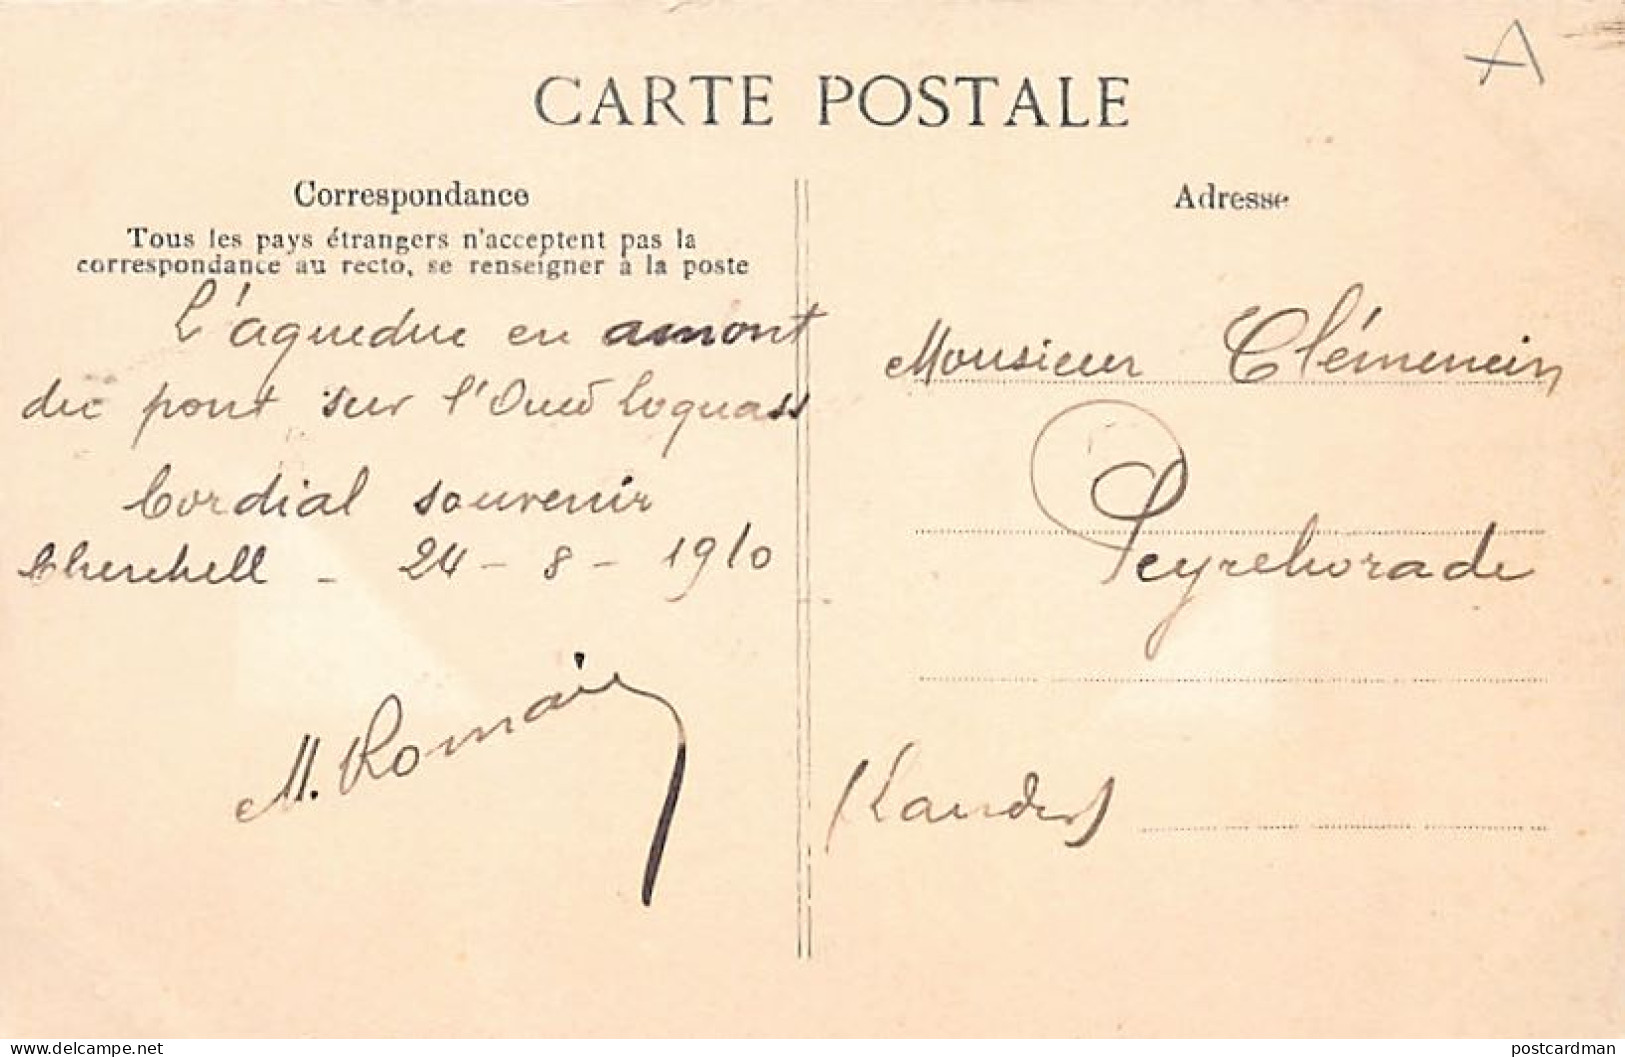 A
CARTE POSTALE
Correspondance
Tous les pays étrangers n'acceptent pas la
correspondance au recto, se renseigner à la poste
L'aqueduc en amont
du pont sur l'Oued
Cordial souvenir
Cherchell - 24 - 8 - 1910
M. Romain
Adresse
Monsieur
Peyrehorade
(Landes)
www.delcampe.net
postcardman